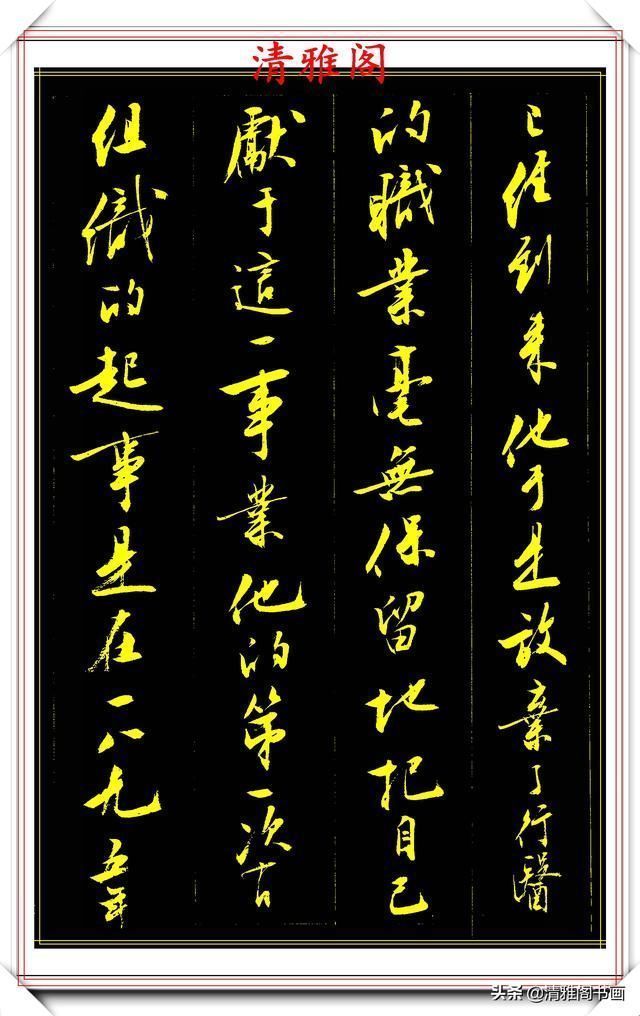 清雅阁
已经到来他于是放棄了行醫
的職業毫無保留地把自己
獻于這一事業他的第一次有
组織的起事是在一八九五年
头条 @清雅阁书画